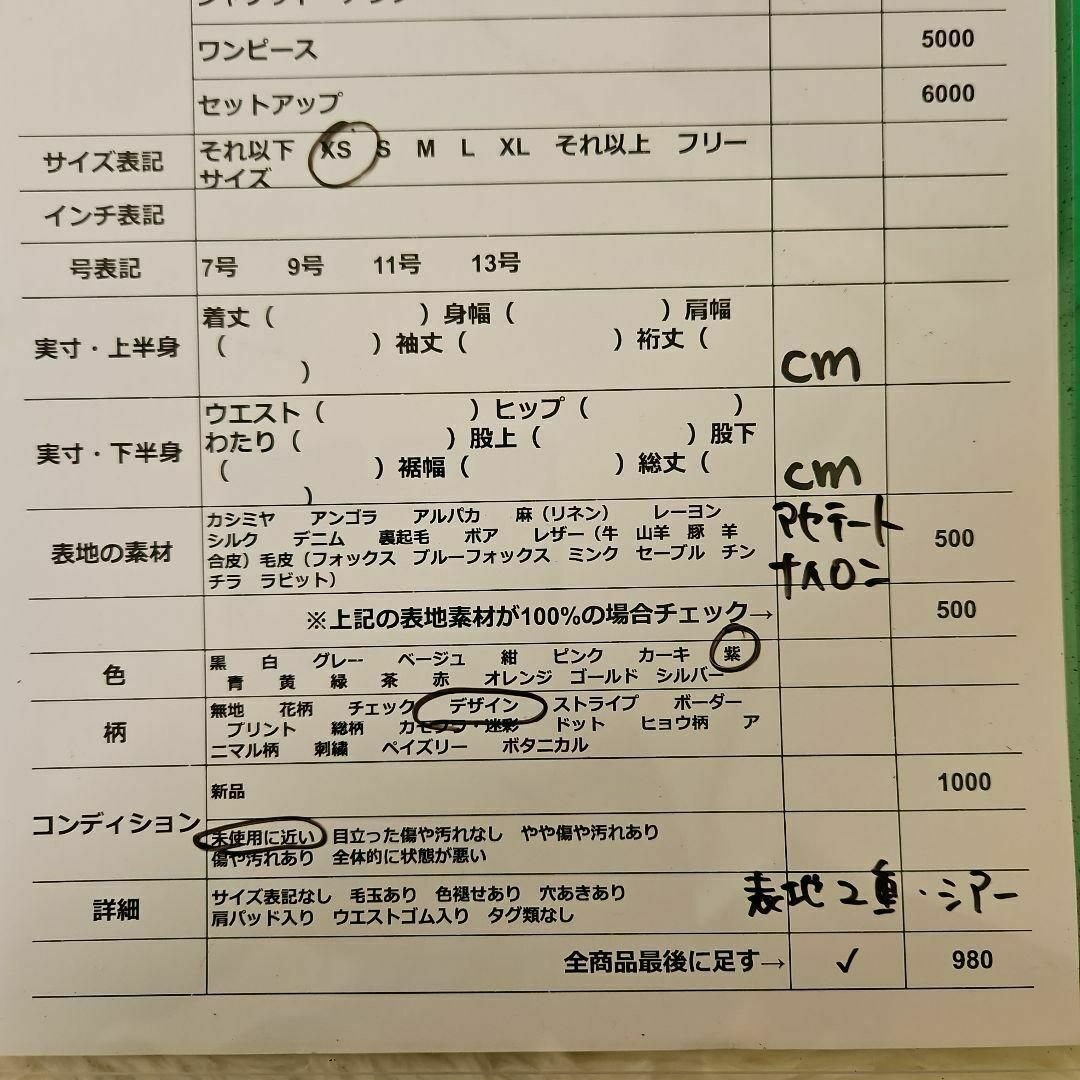 ワンピース 5000
セットアップ 6000
サイズ表記 それ以下 XS S M L XL それ以上 フリー
サイズ
インチ表記
号表記 7号 9号 11号 13号
実寸・上半身 着丈（ ）身幅（ ）肩幅
（ ）袖丈（ ）裄丈（
） cm
実寸・下半身 ウエスト（ ）ヒップ（ ）
わたり（ ）股上（ ）股下
（ ）裾幅（ ）総丈（
） cm
表地の素材 カシミヤ アンゴラ アルパカ 麻（リネン） レーヨン アセテート
シルク デニム 裏起毛 ボア レザー（牛 山羊 豚 羊 500
合皮）毛皮（フォックス ブルーフォックス ミンク セーブル チン ナイロン
チラ ラビット）
※上記の表地素材が100%の場合チェック→ 500
色 黒 白 グレー ベージュ 紺 ピンク カーキ 紫
青 黄 緑 茶 赤 オレンジ ゴールド シルバー
柄 無地 花柄 チェック デザイン ストライプ ボーダー
プリント 総柄 カモフラ・迷彩 ドット ヒョウ柄 ア
ニマル柄 刺繍 ペイズリー ボタニカル
コンディション 新品 1000
未使用に近い 目立った傷や汚れなし やや傷や汚れあり
傷や汚れあり 全体的に状態が悪い
詳細 サイズ表記なし 毛玉あり 色褪せあり 穴あきあり 表地2重・シアー
肩パッド入り ウエストゴム入り タグ類なし
全商品最後に足す→ ✓ 980